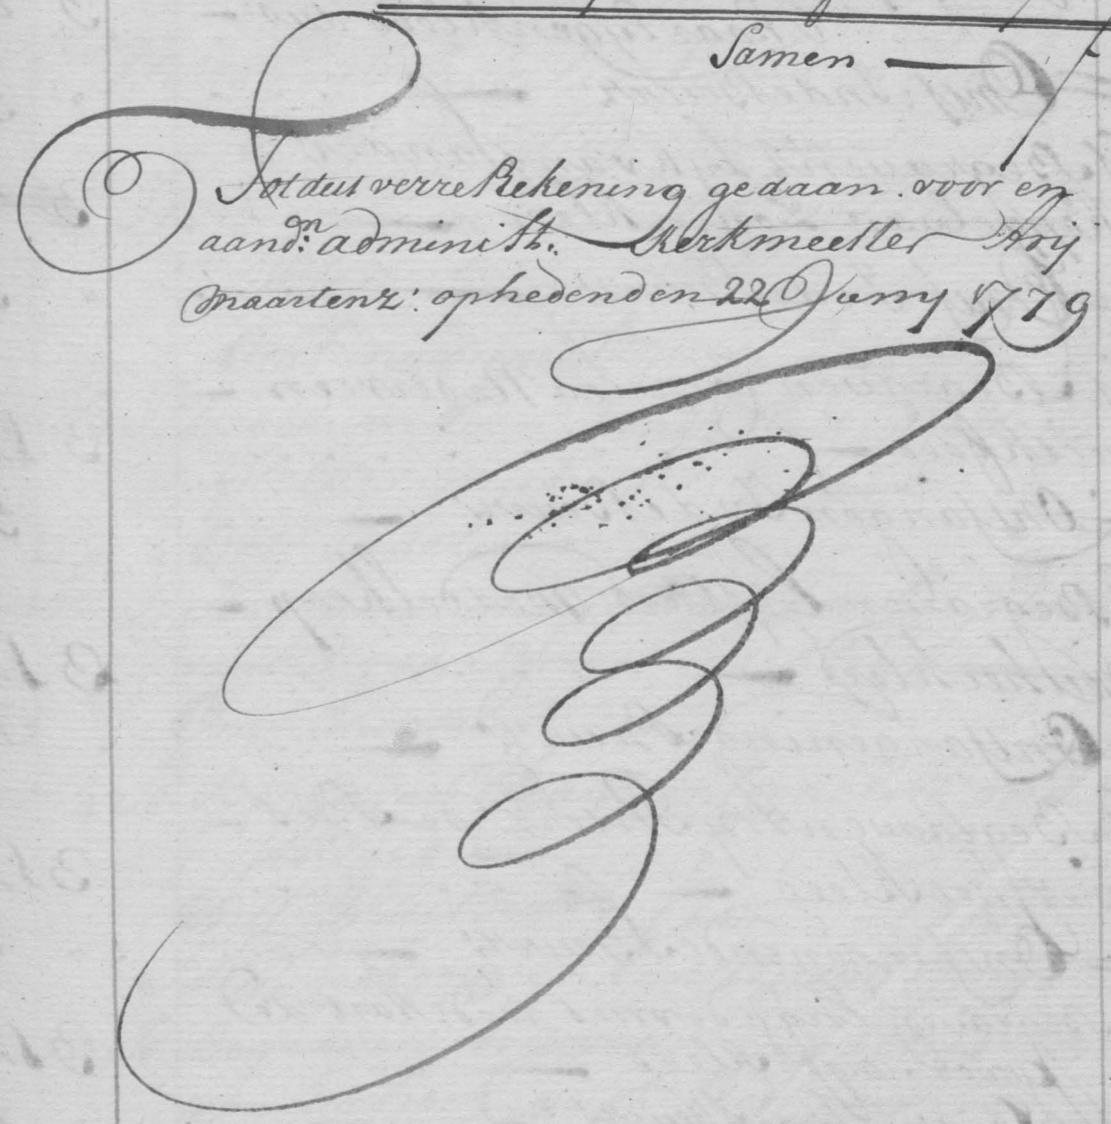 Samen
Tot dus verre Rekening gedaan voor en
aan dn: administ: Kerkmeester Arij
Maartenz: op heden den 22 Juny 1779